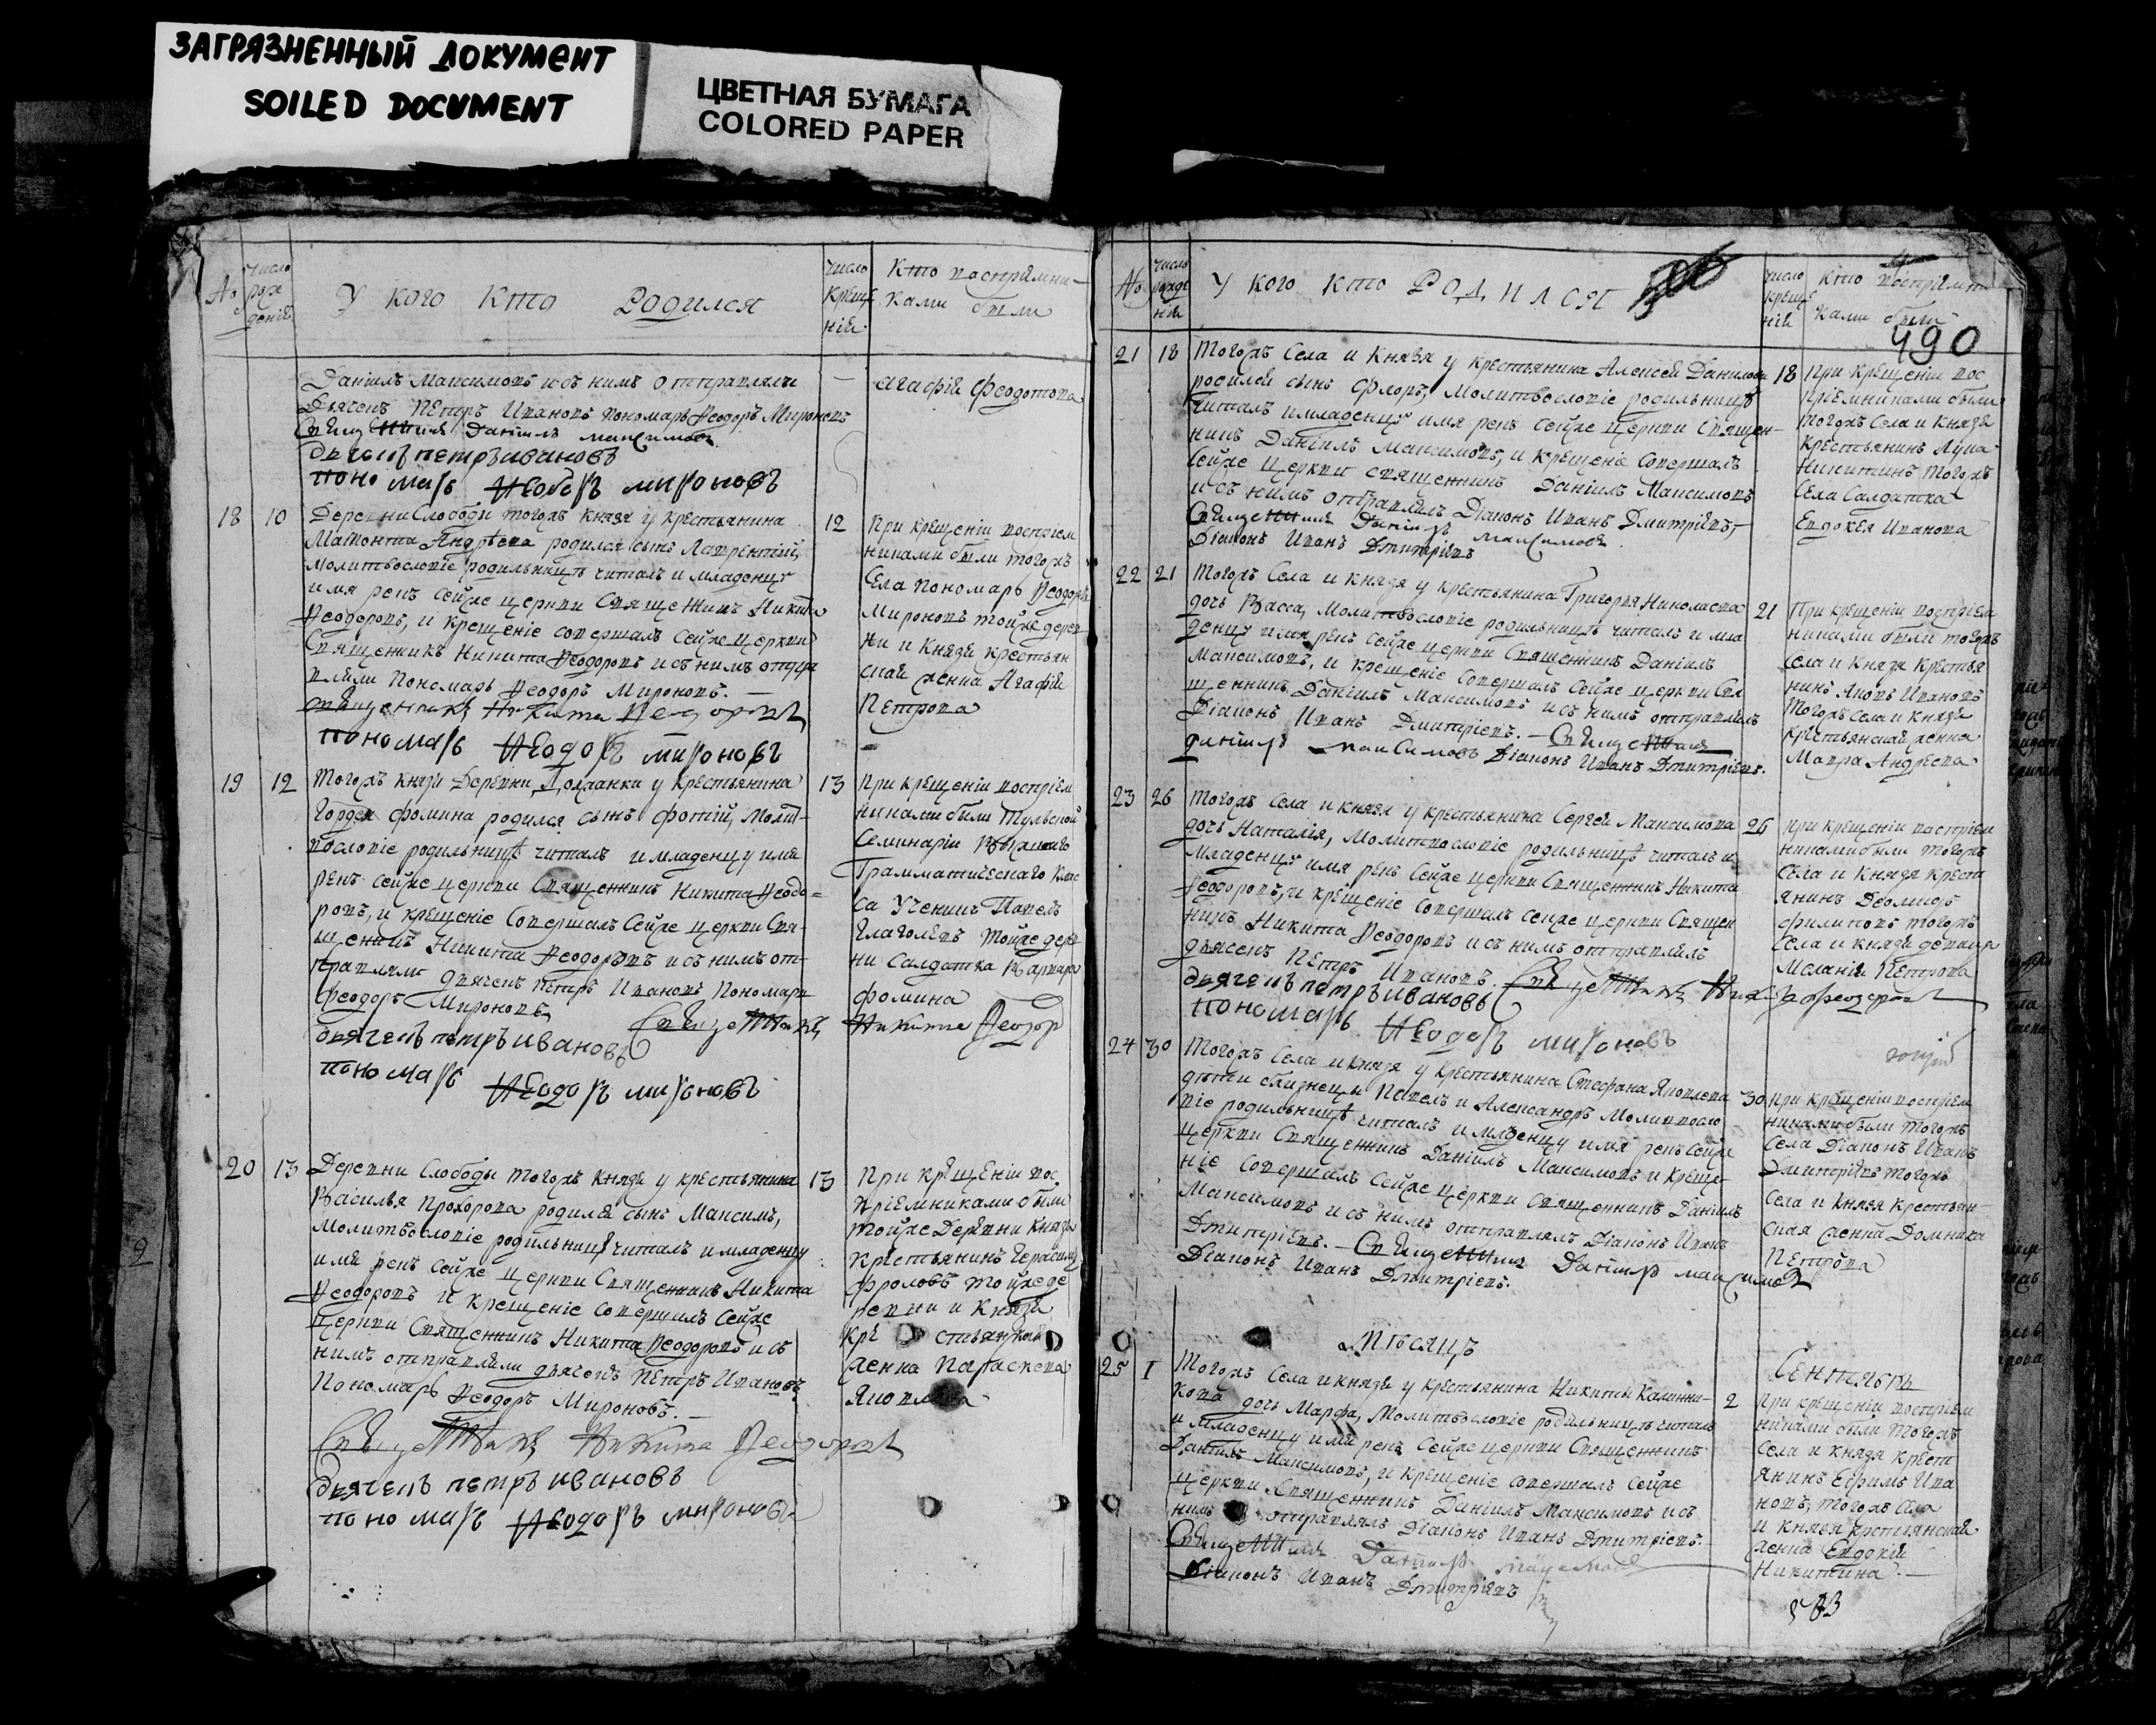 ЗАГРЯЗНЕННЫЙ ДОКУМЕНТ
SOILED DOCUMENT
ЦВЕТНАЯ БУМАГА
COLORED PAPER
№
число рождений
У кого Кто Родился
число крещений
Кто воспрiемниками были
Данiилъ Максимовъ и съ нимъ отправляли
Дьячекъ Петръ Ивановъ Пономарь Ѳеодоръ Мироновъ
Священникъ Данiилъ Максимовъ
дьячекъ петръ ивановъ
пономарь Ѳеодоръ мироновъ
агафiя Феодотова
18
10
Деревни Слободы тогожъ князя у крестьянина
Мамонта Андрѣева родился сынъ Лаврентiй,
молитвословiе родильницѣ читалъ и младенцу
имя рекъ сейже церкви Священникъ Никита
Ѳеодоровъ, и крещенiе совершалъ сейже церкви
Священникъ Никита Ѳеодоровъ и съ нимъ отпра
вляли Пономарь Ѳеодоръ Мироновъ. —
священникъ Никита Ѳеодоровъ
пономарь Ѳеодоръ мироновъ
12
При крещенiи воспрiем
никами были тогожъ
Села Пономарь Ѳеодоръ
Мироновъ тойже дерев
ни и Князя крестьян
ская женка Агафiя
Петрова
19
12
Тогожъ князя Деревни Должанки у Крестьянина
Гордея фомина родился сынъ фотiй, Молит-
вословiе родильницѣ читалъ и младенцу имя
рекъ сейже церкви Священникъ Никита Ѳеодо-
ровъ, и крещенiе Совершалъ Сейже церкви Свя-
щенникъ Никита Ѳеодоровъ и съ нимъ от-
правляли дьячекъ Петръ Ивановъ Пономарь
Феодоръ Мироновъ
Священникъ Никита Ѳеодор
дьячекъ петръ ивановъ
пономарь Ѳеодоръ мироновъ
13
При крещенiи воспрiем
никами были Тульской
Семинарiи Вышняго
Грамматическаго Клас
са Ученикъ Павелъ
Глаголевъ Тойже дерев
ни Салдатка Варвара
фомина
20
13
Деревни Слободы тогожъ князя у крестьянина
Василья Прохорова родился сынъ Максимъ,
Молитвословiе родильницѣ читалъ и младенцу
имя рекъ сейже церкви Священникъ Никита
Ѳеодоровъ и крещенiе совершилъ Сейже
церкви Священникъ Никита Ѳеодоровъ и съ
нимъ отправляли дьячокъ Петръ Ивановъ
Пономарь Ѳеодоръ Мироновъ. —
Священникъ Никита Ѳеодоровъ
дьячекъ петръ ивановъ
пономарь Ѳеодоръ мироновъ
13
При крещенiи вос
прiемниками были
тойже Деревни Князя
Крестьянинъ Герасимъ
Фроловъ тойже де
ревни и Князя
кре стьянской
женка Параскева
№
число рождений
У кого кто Родился
число крещенiй
Кто воспрiемни
ками были
490
21
18
Тогожъ Села и Князя у крестьянина Алексея Данилова
родился сынъ Флоръ, Молитвословiе родильницѣ
читалъ и младенцу имя рекъ сейже церкви Священ-
никъ Данiилъ Максимовъ, и крещенiе Совершалъ
Сейже церкви священникъ Данiилъ Максимовъ
и съ нимъ отправлялъ Дiаконъ Иванъ Дмитрiевъ, —
Священникъ Данiилъ Максимовъ
Дiаконъ Иванъ Дмитрiевъ
18
При крещенiи вос
прiемниками были
тогожъ Села и Князя
Крестьянинъ Лука
Никитинъ тогожъ
Села Салдатка
Евдокея Иванова
22
21
Тогожъ Села и князя у крестьянина Григорья Николаева
дочь Васса, Молитвословiе родильницѣ читалъ и мла
денцу имя рекъ сейже церкви Священникъ Данiилъ
Максимовъ, и крещенiе Совершалъ Сейже церкви Свя
щенникъ Данiилъ Максимовъ и съ нимъ отправлялъ
Дiаконъ Иванъ Дмитрiевъ. — Священникъ
Данiилъ максимовъ Дiаконъ Иванъ Дмитрiевъ.
21
При крещенiи воспрiем
никами были тогожъ
Села и князя Крестья
нинъ Яковъ Ивановъ
Тогожъ Села и Князя
крестьянская женка
Мавра Андреева
23
26
Тогожъ Села и князя у крестьянина Сергея Максимова
дочь Наталiя, Молитвословiе родильницѣ читалъ и
младенцу имя рекъ Сейже церкви Священникъ Никита
Ѳеодоровъ, и крещенiе Совершалъ сейже церкви Священ
никъ Никита Ѳеодоровъ и съ нимъ отправлялъ
дьячекъ Петръ Ивановъ. Священникъ Никита Феодоровъ
дьячекъ петръ ивановъ
пономарь Ѳеодоръ мироновъ
26
При крещенiи воспрiем
никами были тогожъ
Села и Князя Крестья
янинъ Деомидъ
филиповъ тогожъ
Села и князя девица
Меланiя Петрова
24
30
Тогожъ Села и князя у крестьянина Стефана Яковлева
дѣти близнецы Павелъ и Александръ Молитвосло
вiе родильницѣ читалъ и младенцу имя рекъ сейже
церкви Священникъ Данiилъ Максимовъ и Креще-
нiе Совершалъ Сейже церкви священникъ Данiилъ
Максимовъ и съ нимъ отправлялъ Дiаконъ Иванъ
Дмитрiевъ. — Священникъ Данiилъ максимовъ
Дiаконъ Иванъ Дмитрiевъ.
30
При крещенiи воспрiем
никами были тогожъ
Села Дiаконъ Иванъ
Дмитрiевъ тогожъ
Села и Князя Крестьян
ская женка Домника
Петрова
Мѣсяцъ
Сентябрь
25
1
Тогожъ Села и князя у крестьянина Никиты Калинни-
кова дочь Марфа, Молитвословiе родильницѣ читалъ
и младенцу имя рекъ Сейже церкви Священникъ
Данiилъ Максимовъ, и крещенiе совершалъ Сейже
церкви Священникъ Данiилъ Максимовъ и съ
нимъ отправлялъ Дiаконъ Иванъ Дмитрiевъ. —
Священникъ Данiилъ
Дiаконъ Иванъ Дмитрiевъ
2
При крещенiи воспрiем
никами были тогожъ
Села и князя крест
янинъ Ефимъ Ива
новъ, тогожъ Села
и князя крестьянская
женка Евдокiя
Никитина. —